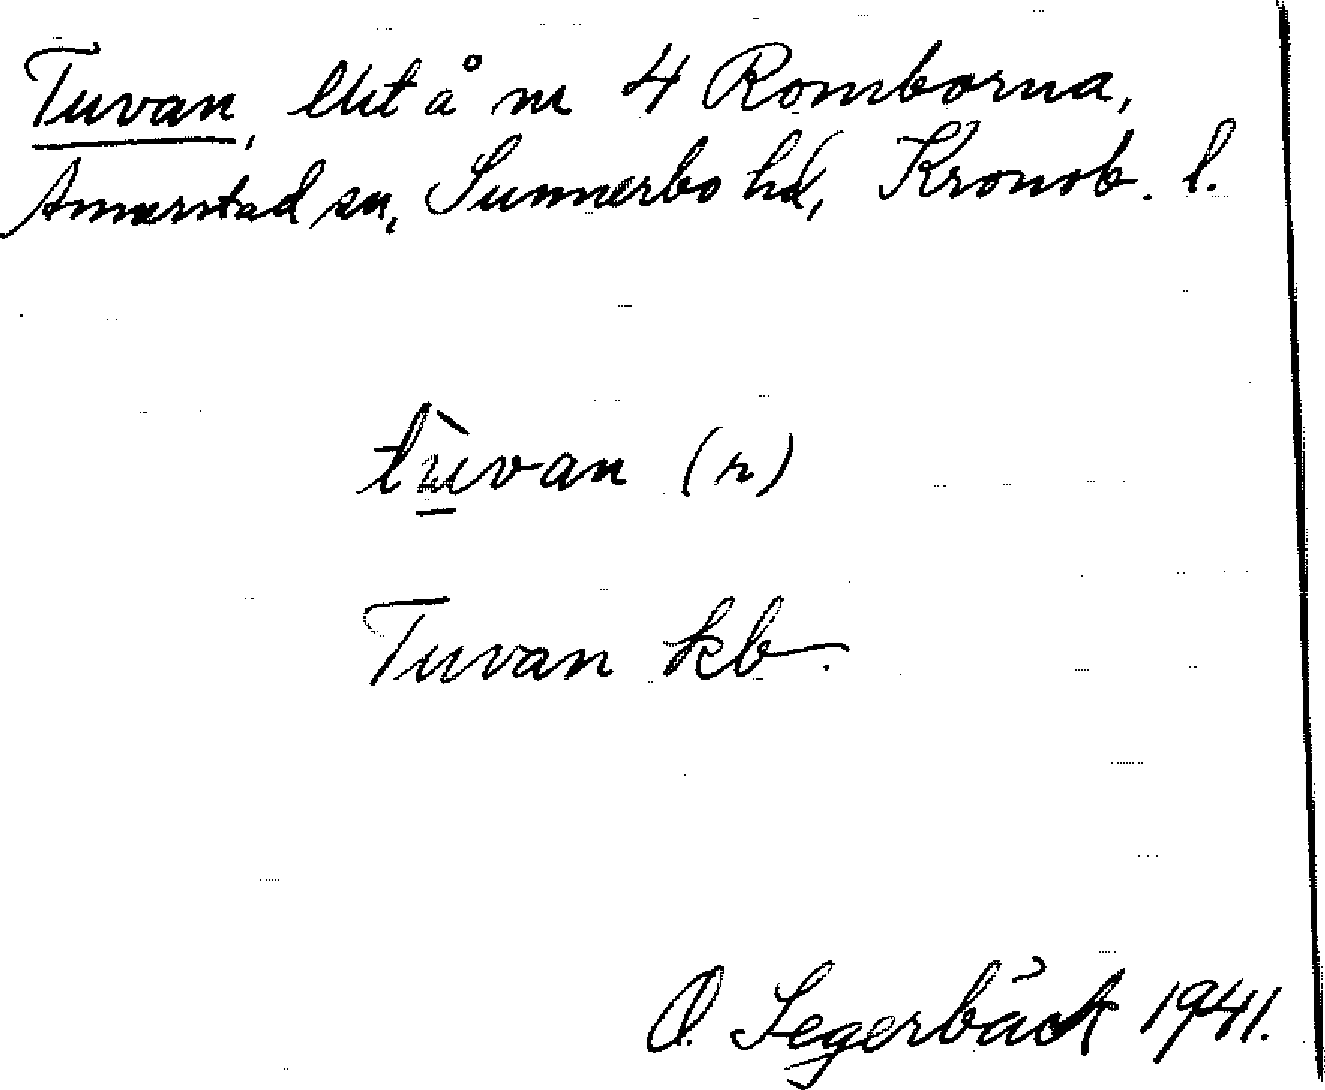 Tuvan, lht å nr 4 Romborna,
Annerstad sn, Sunnerbo hd, Kronob. l.
tùvan (r)
Tuvan kb.
O. Segerbäck 1941.